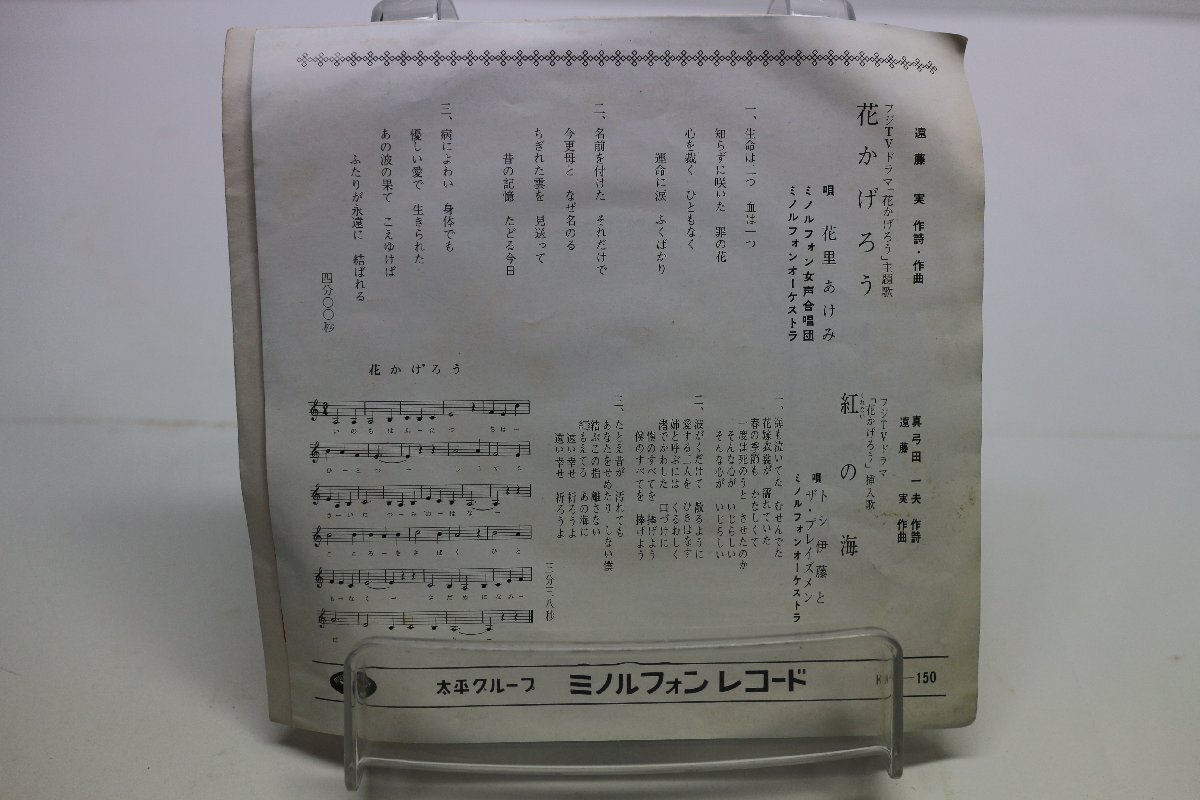 遠藤 実 作詩・作曲
フジTVドラマ「花かげろう」主題歌
花かげろう
唄 花里あけみ
ミノルフォン女声合唱団
ミノルフォンオーケストラ
一、生命は二つ 血は一つ
知らずに咲いた 罪の花
心を裁く ひともなく
運命に涙 ふくばかり
二、名前を付けた それだけで
今更母と なぜ名のる
ちぎれた雲を 見送って
昔の記憶 たどる今日
三、病によわい 身体でも
優しい愛で 生きられた
あの波の果て こえゆけば
ふたりが永遠に 結ばれる
四分〇〇秒
真弓田 一夫 作詩
遠藤 実 作曲
フジTVドラマ
「花かげろう」挿入歌
紅の海
くれない
唄 トシ伊藤と
ザ・プレイズメン
ミノルフォンオーケストラ
一、海も泣いてた むせんでた
花嫁衣裳が 濡れていた
春の季節も かたなしくて
一度は死のうと させたのか
そんな心が いじらしい
そんな心が いじらしい
二、波がくだけて 散るように
愛する二人を ひきはなす
姉と呼ぶには くるおしく
渚でかわした 口づけに
僕のすべてを 捧げよう
僕のすべてを 捧げよう
三、たとえ昔が 汚れても
あなたをせめたり しない僕
結ぶこの指 離さない
紅もえてる あの海に
遠い幸せ 祈ろうよ
遠い幸せ 祈ろうよ
三分三八秒
花かげろう
いのちはふーたつ ちはー
ひーとつー しらずに
さーいた つーみーのーはなー
こころーをさばく ひと
もーなくー さだめになみー
太平グループ ミノルフォンレコード
150